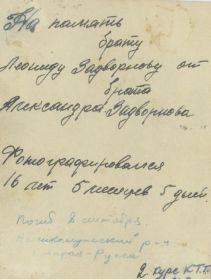 На память
брату
Леониду Задворнову от
брата
Александра Задворнова
Фотографировался
16 лет 5 месяцев 5 дней.
Погиб в сентябре
р-н
Руза
2 курс К.Т.